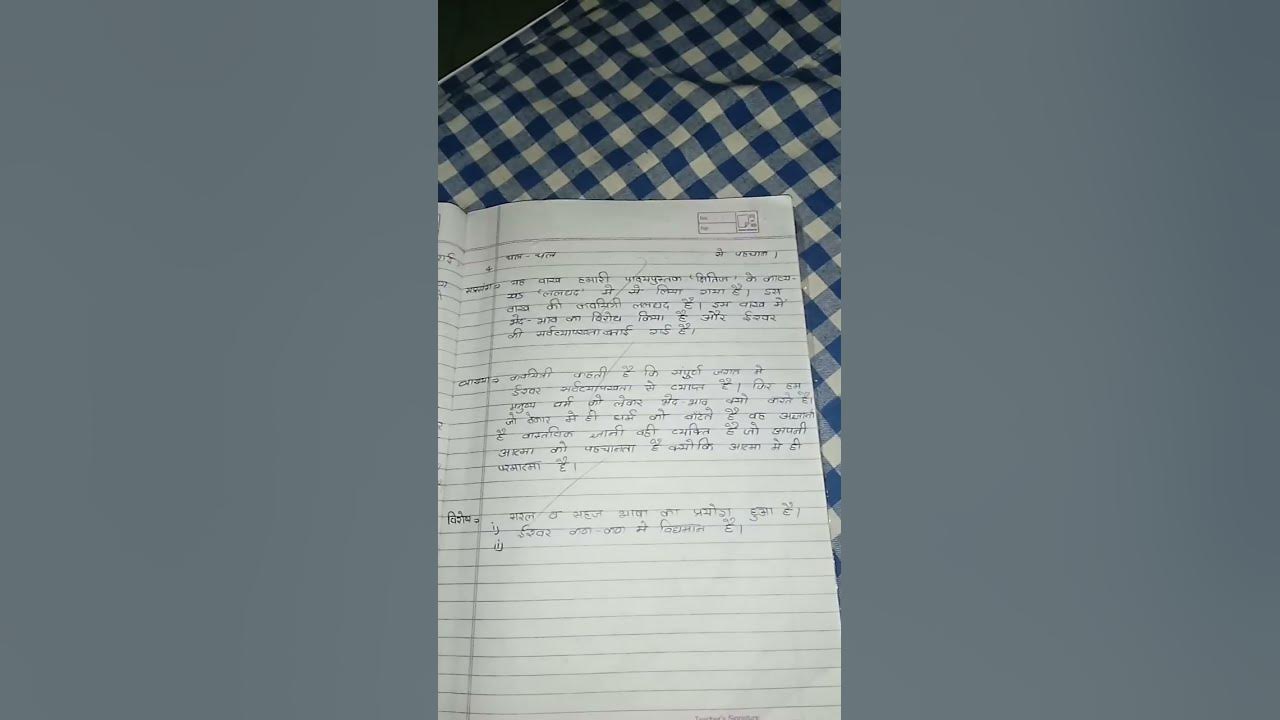 थल-थल से पहचान।
प्रसंग:- यह वाख हमारी पाठ्यपुस्तक 'क्षितिज' के काव्य-
खंड 'ललद्यद' में से लिया गया है। इस
वाख की कवयित्री ललद्यद है। इस वाख में
भेद-भाव का विरोध किया है और ईश्वर
की सर्वव्यापकता बताई गई है।
व्याख्या:- कवयित्री कहती है कि संपूर्ण जगत मे
ईश्वर सर्वव्यापकता से व्याप्त है। फिर हम
मनुष्य धर्म को लेकर भेद-भाव क्यो करते है।
जो मे ही धर्म को बांटते है वह अज्ञानी
है वास्तविक ज्ञानी वही व्यक्ति है जो अपनी
आत्मा को पहचानता है क्योकि आत्मा मे ही
परमात्मा है।
विशेष:- सरल व सहज भाषा का प्रयोग हुआ है।
i)
ii) ईश्वर कण-कण मे विद्यमान है।
Teacher's Signature